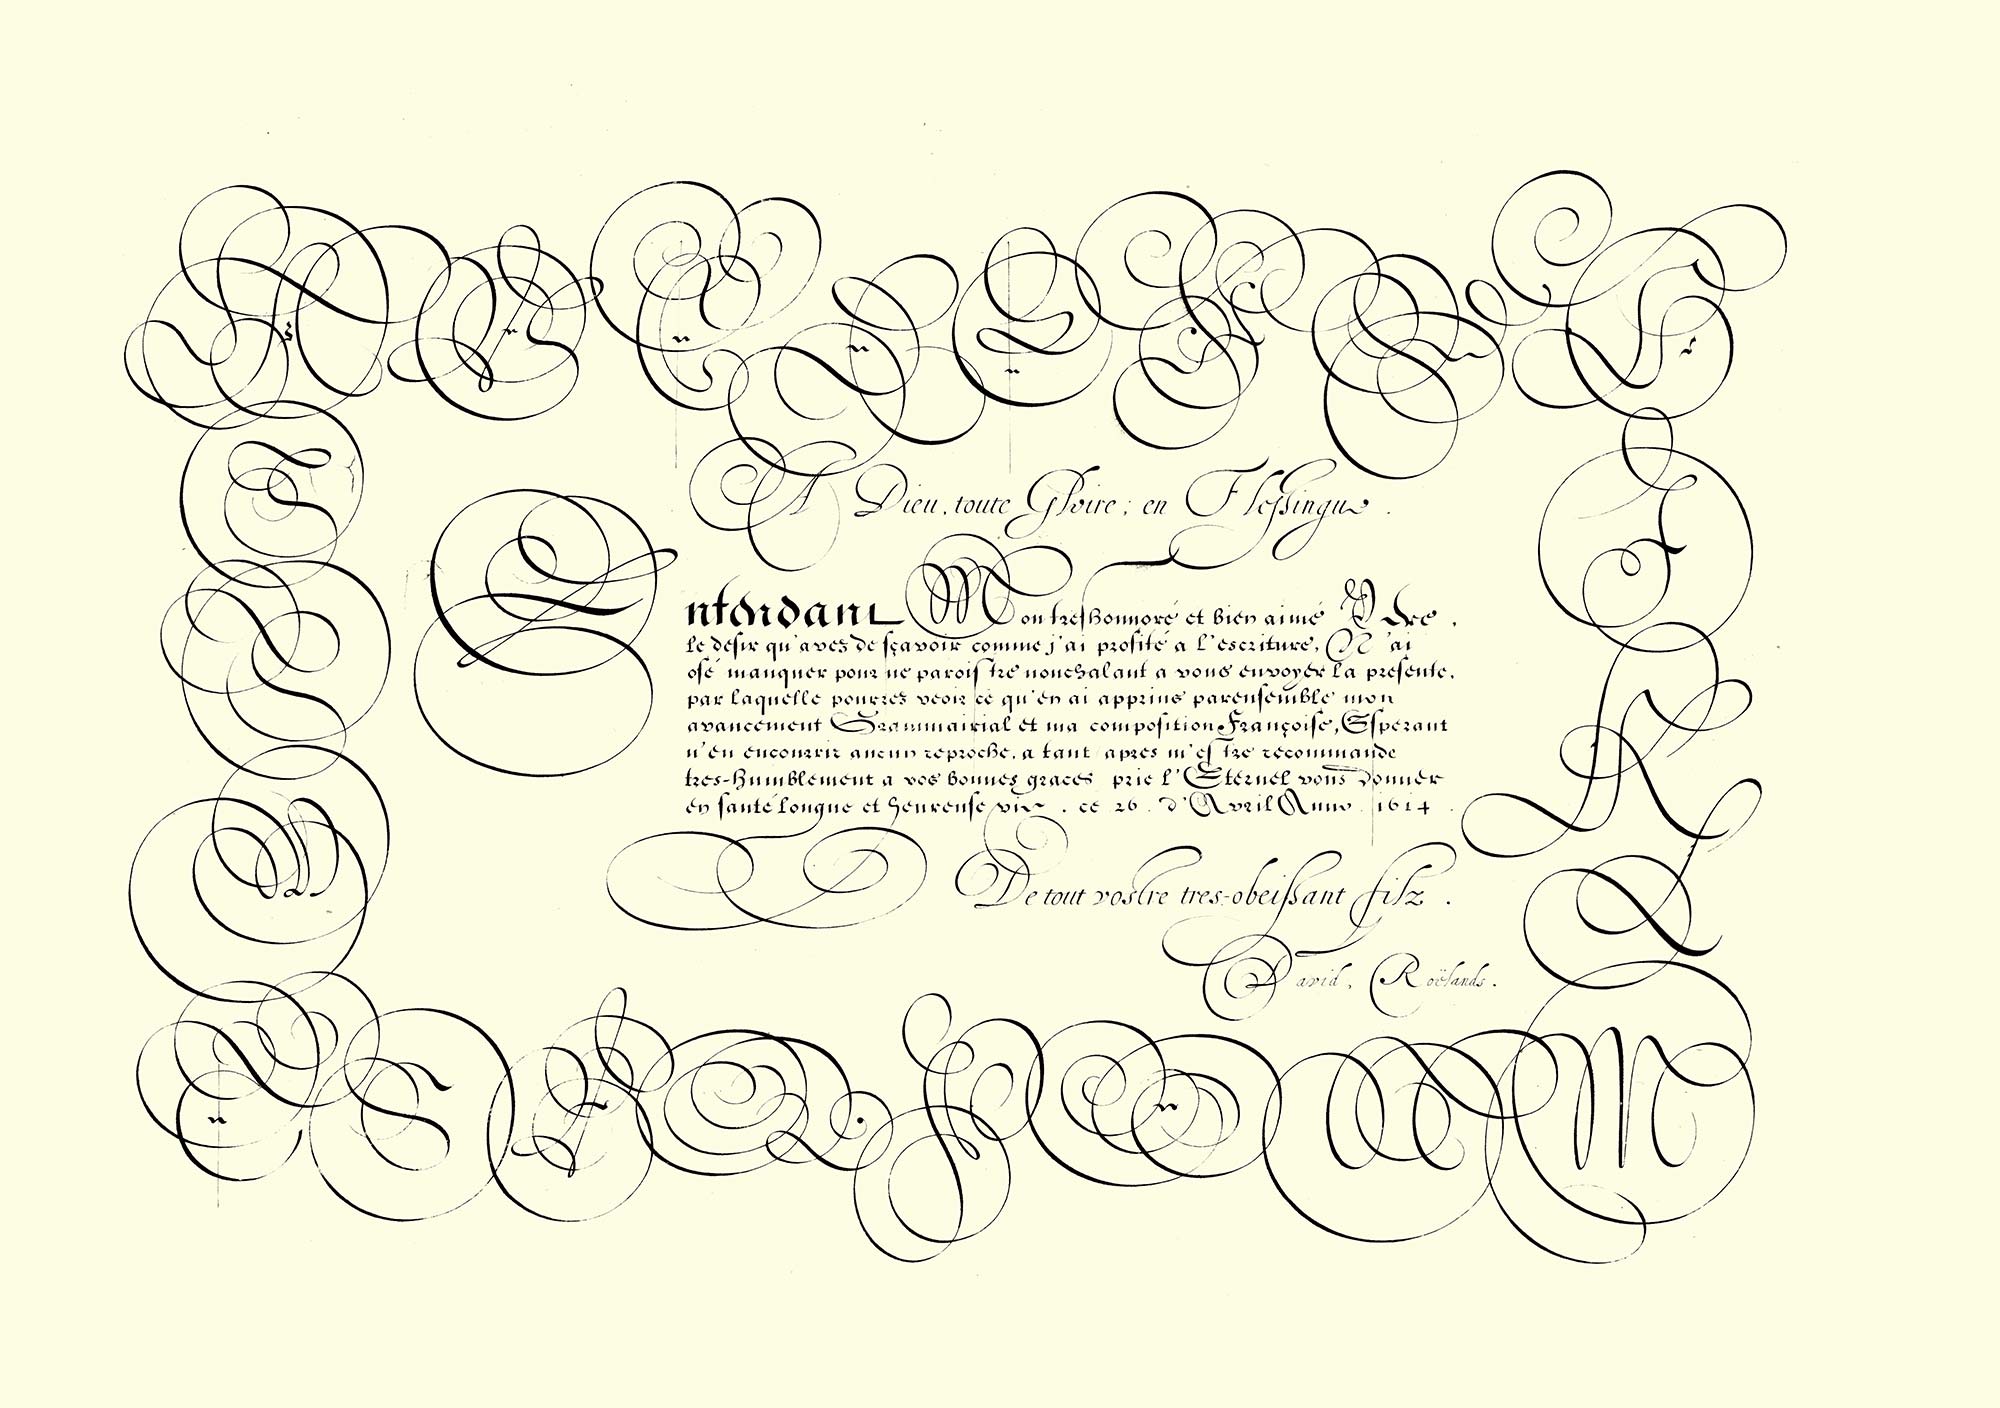 A Dieu, toute Gloire; en Flessingue.
Entendant Mon treshonnoré et bien aimé Pere.
le desir qu'avez de sçavoir comme j'ai profité a l'escriture, N'ai
osé manquer pour ne paroistre nonchalant a vous envoyer la presente,
par laquelle pourrez veoir ce qu'en ai apprins parensemble mon
avancement Grammairial et ma composition Françoise, Esperant
n'en encourrir aucun reproche, a tant apres m'estre recommande
tres-humblement a vos bonnes graces prie l'Eternel vous donner
en santé longue et heureuse vie. ce 26. d'Avril Anno 1614.
De tout vostre tres-obeissant filz.
David Roëlands.